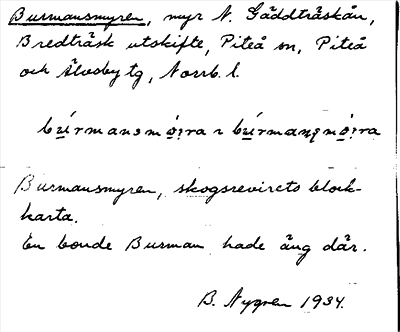 Burmansmyren, myr N. Gäddträskån,
Bredträsk utskifte, Piteå sn, Piteå
och Älvsby tg, Norrb. l.
búrmansmó̱i̱ra ɿ búrmansmó̱i̱ra
Burmansmyren, skogsrevirets block-
karta.
En bonde Burman hade äng där.
B. Nygren 1934.